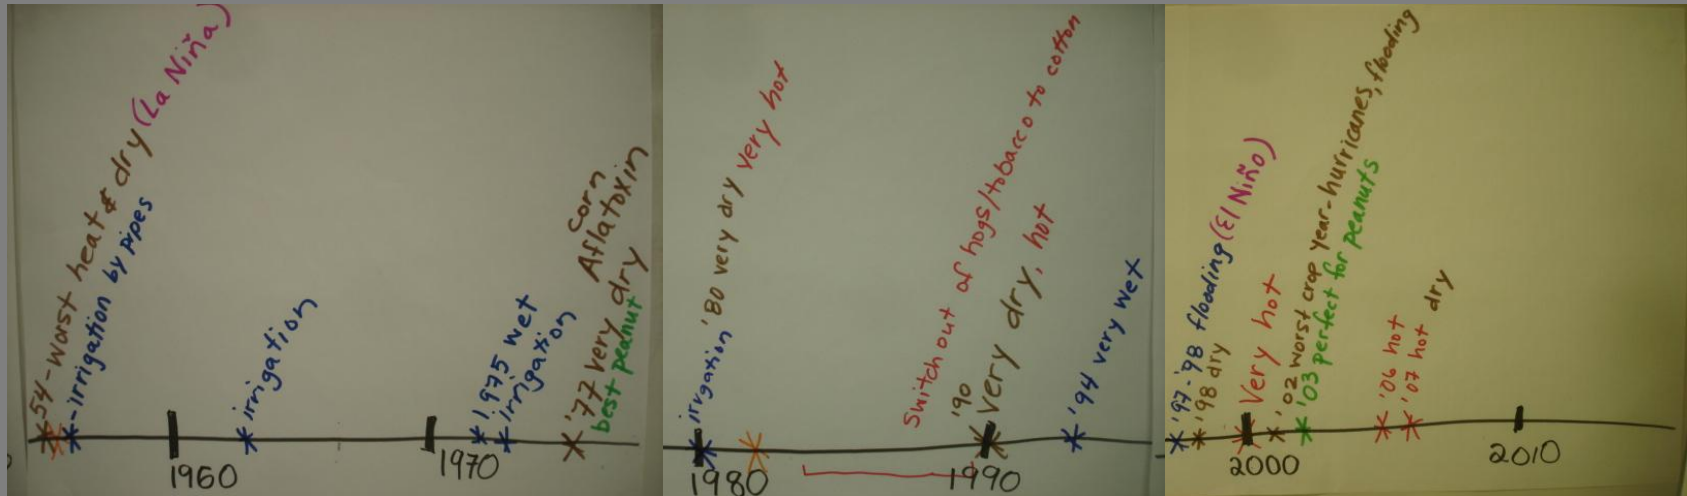 '54-worst heat & dry (La Niña)
-irrigation by pipes
irrigation
1975 wet
irrigation
'77 very dry
corn
Aflatoxin
best peanut
1960
1970
irrgation
'80 very dry very hot
Switch out of hogs/tobacco to cotton
'90
very dry, hot
'94 very wet
1980
1990
'97-'98 flooding (El Niño)
'98 dry
Very hot
'02 worst crop year-hurricanes, flooding
'03 perfect for peanuts
'06 hot
'07 hot dry
2000
2010